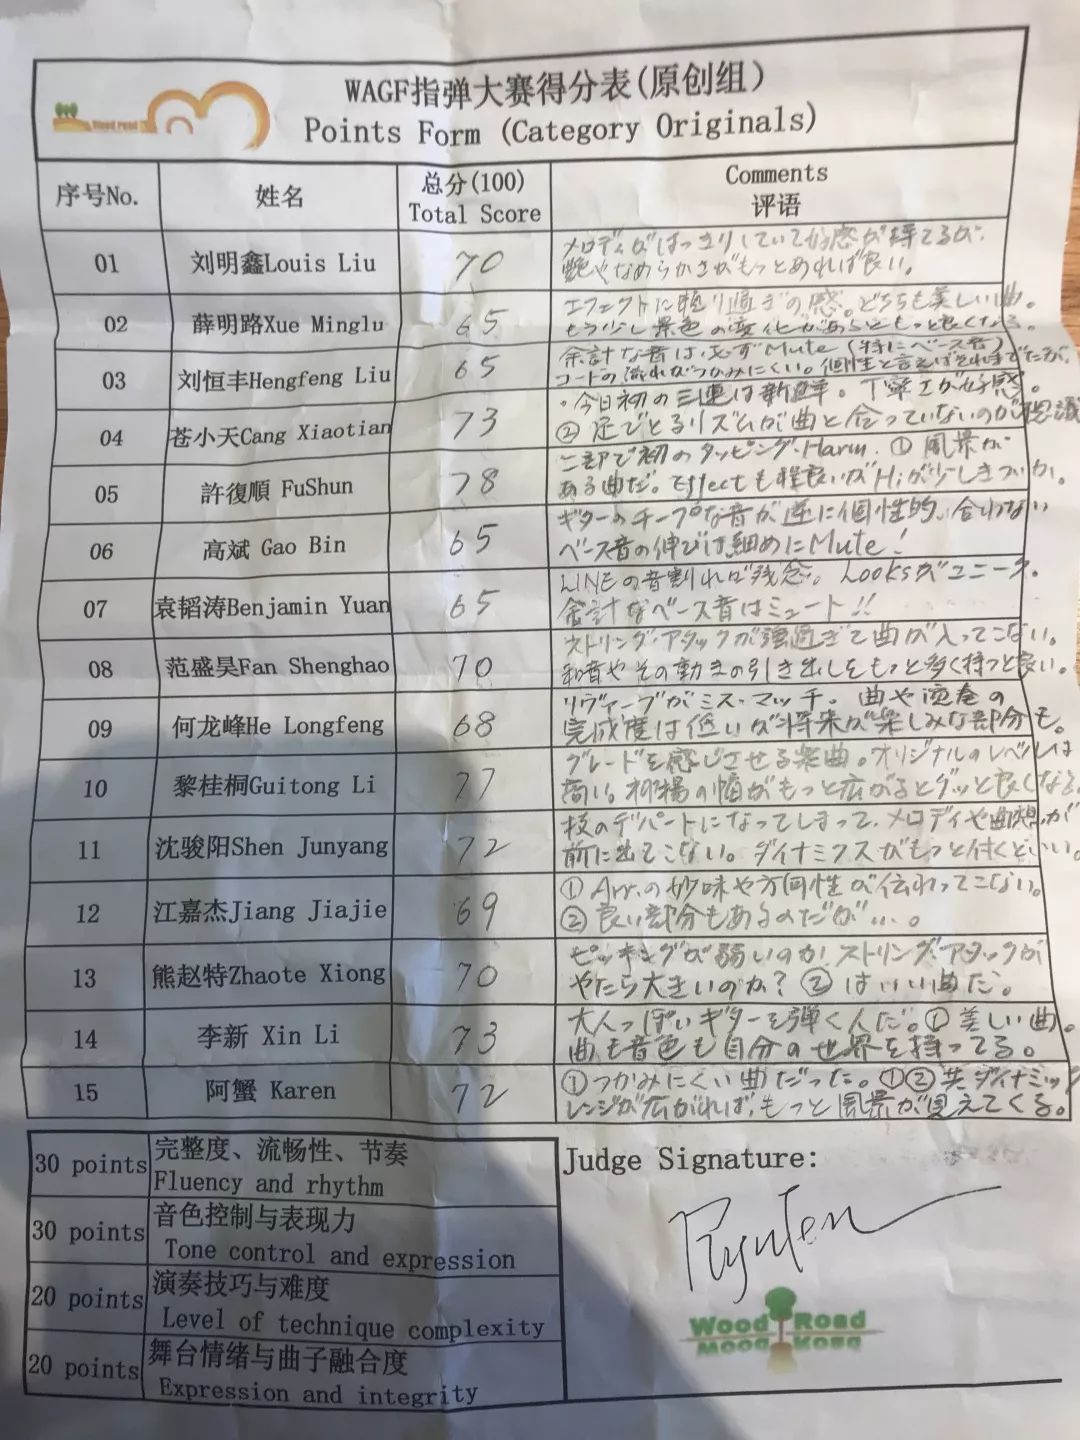 Wood road
WAGF指弹大赛得分表(原创组)
Points Form (Category Originals)
序号No.
姓名
总分(100)
Total Score
Comments
评语
01
刘明鑫Louis Liu
70
メロディがはっきりしていて好感が持てるが、
艶やなめらかさがもっとあれば良い。
02
薛明路Xue Minglu
65
エフェクトに頼り過ぎの感。どちらも美しい曲。
もう少し景色の変化があるともっと良くなる。
03
刘恒丰Hengfeng Liu
65
余計な音は必ずMute(特にベース音)
コードの流れがつかみにくい。個性と言えばそれまでだが。
04
苍小天Cang Xiaotian
73
・今日初の三連は新鮮。丁寧さが好感。
② 足でとるリズムが曲と合っていないのが
05
許復順 FuShun
78
二部で初のタッピング・Harm. ① 風景が
ある曲だ。Effectも程良いがHiが少しきついか。
06
高斌 Gao Bin
65
ギターのチープな音が逆に個性的。合わない
ベース音の伸びは細めにMute!
07
袁韬涛Benjamin Yuan
65
LINEの音割れが残念。Looksがユニーク。
余計なベース音はミュート!!
08
范盛昊Fan Shenghao
70
ストリング・アタックが強過ぎて曲が入ってこない。
和音やその動きの引き出しをもっと多く持つと良い。
09
何龙峰He Longfeng
68
リヴァーブがミス・マッチ。曲や演奏の
完成度は低いが将来が楽しみな部分も。
10
黎桂桐Guitong Li
77
グレードを感じさせる楽曲。オリジナルのレベルは
高い。抑揚の幅がもっと広がるとグッと良くなる。
11
沈骏阳Shen Junyang
72
技のデパートになってしまって、メロディや曲想が
前に出てこない。ダイナミクスがもっと付くといい。
12
江嘉杰Jiang Jiajie
69
① Arr.の妙味や方向性が伝わってこない。
② 良い部分もあるのだが…。
13
熊赵特Zhaote Xiong
70
ピッキングが弱いのか、ストリング・アタックが
やたら大きいのか? ② はいい曲だ。
14
李新 Xin Li
73
大人っぽいギターを弾く人だ。① 美しい曲。
曲も音色も自分の世界を持ってる。
15
阿蟹 Karen
72
① つかみにくい曲だった。①②共ダイナミック
レンジが広がれば、もっと風景が見えてくる。
30 points
完整度、流畅性、节奏
Fluency and rhythm
30 points
音色控制与表现力
Tone control and expression
20 points
演奏技巧与难度
Level of technique complexity
20 points
舞台情绪与曲子融合度
Expression and integrity
Judge Signature:
Wood Road